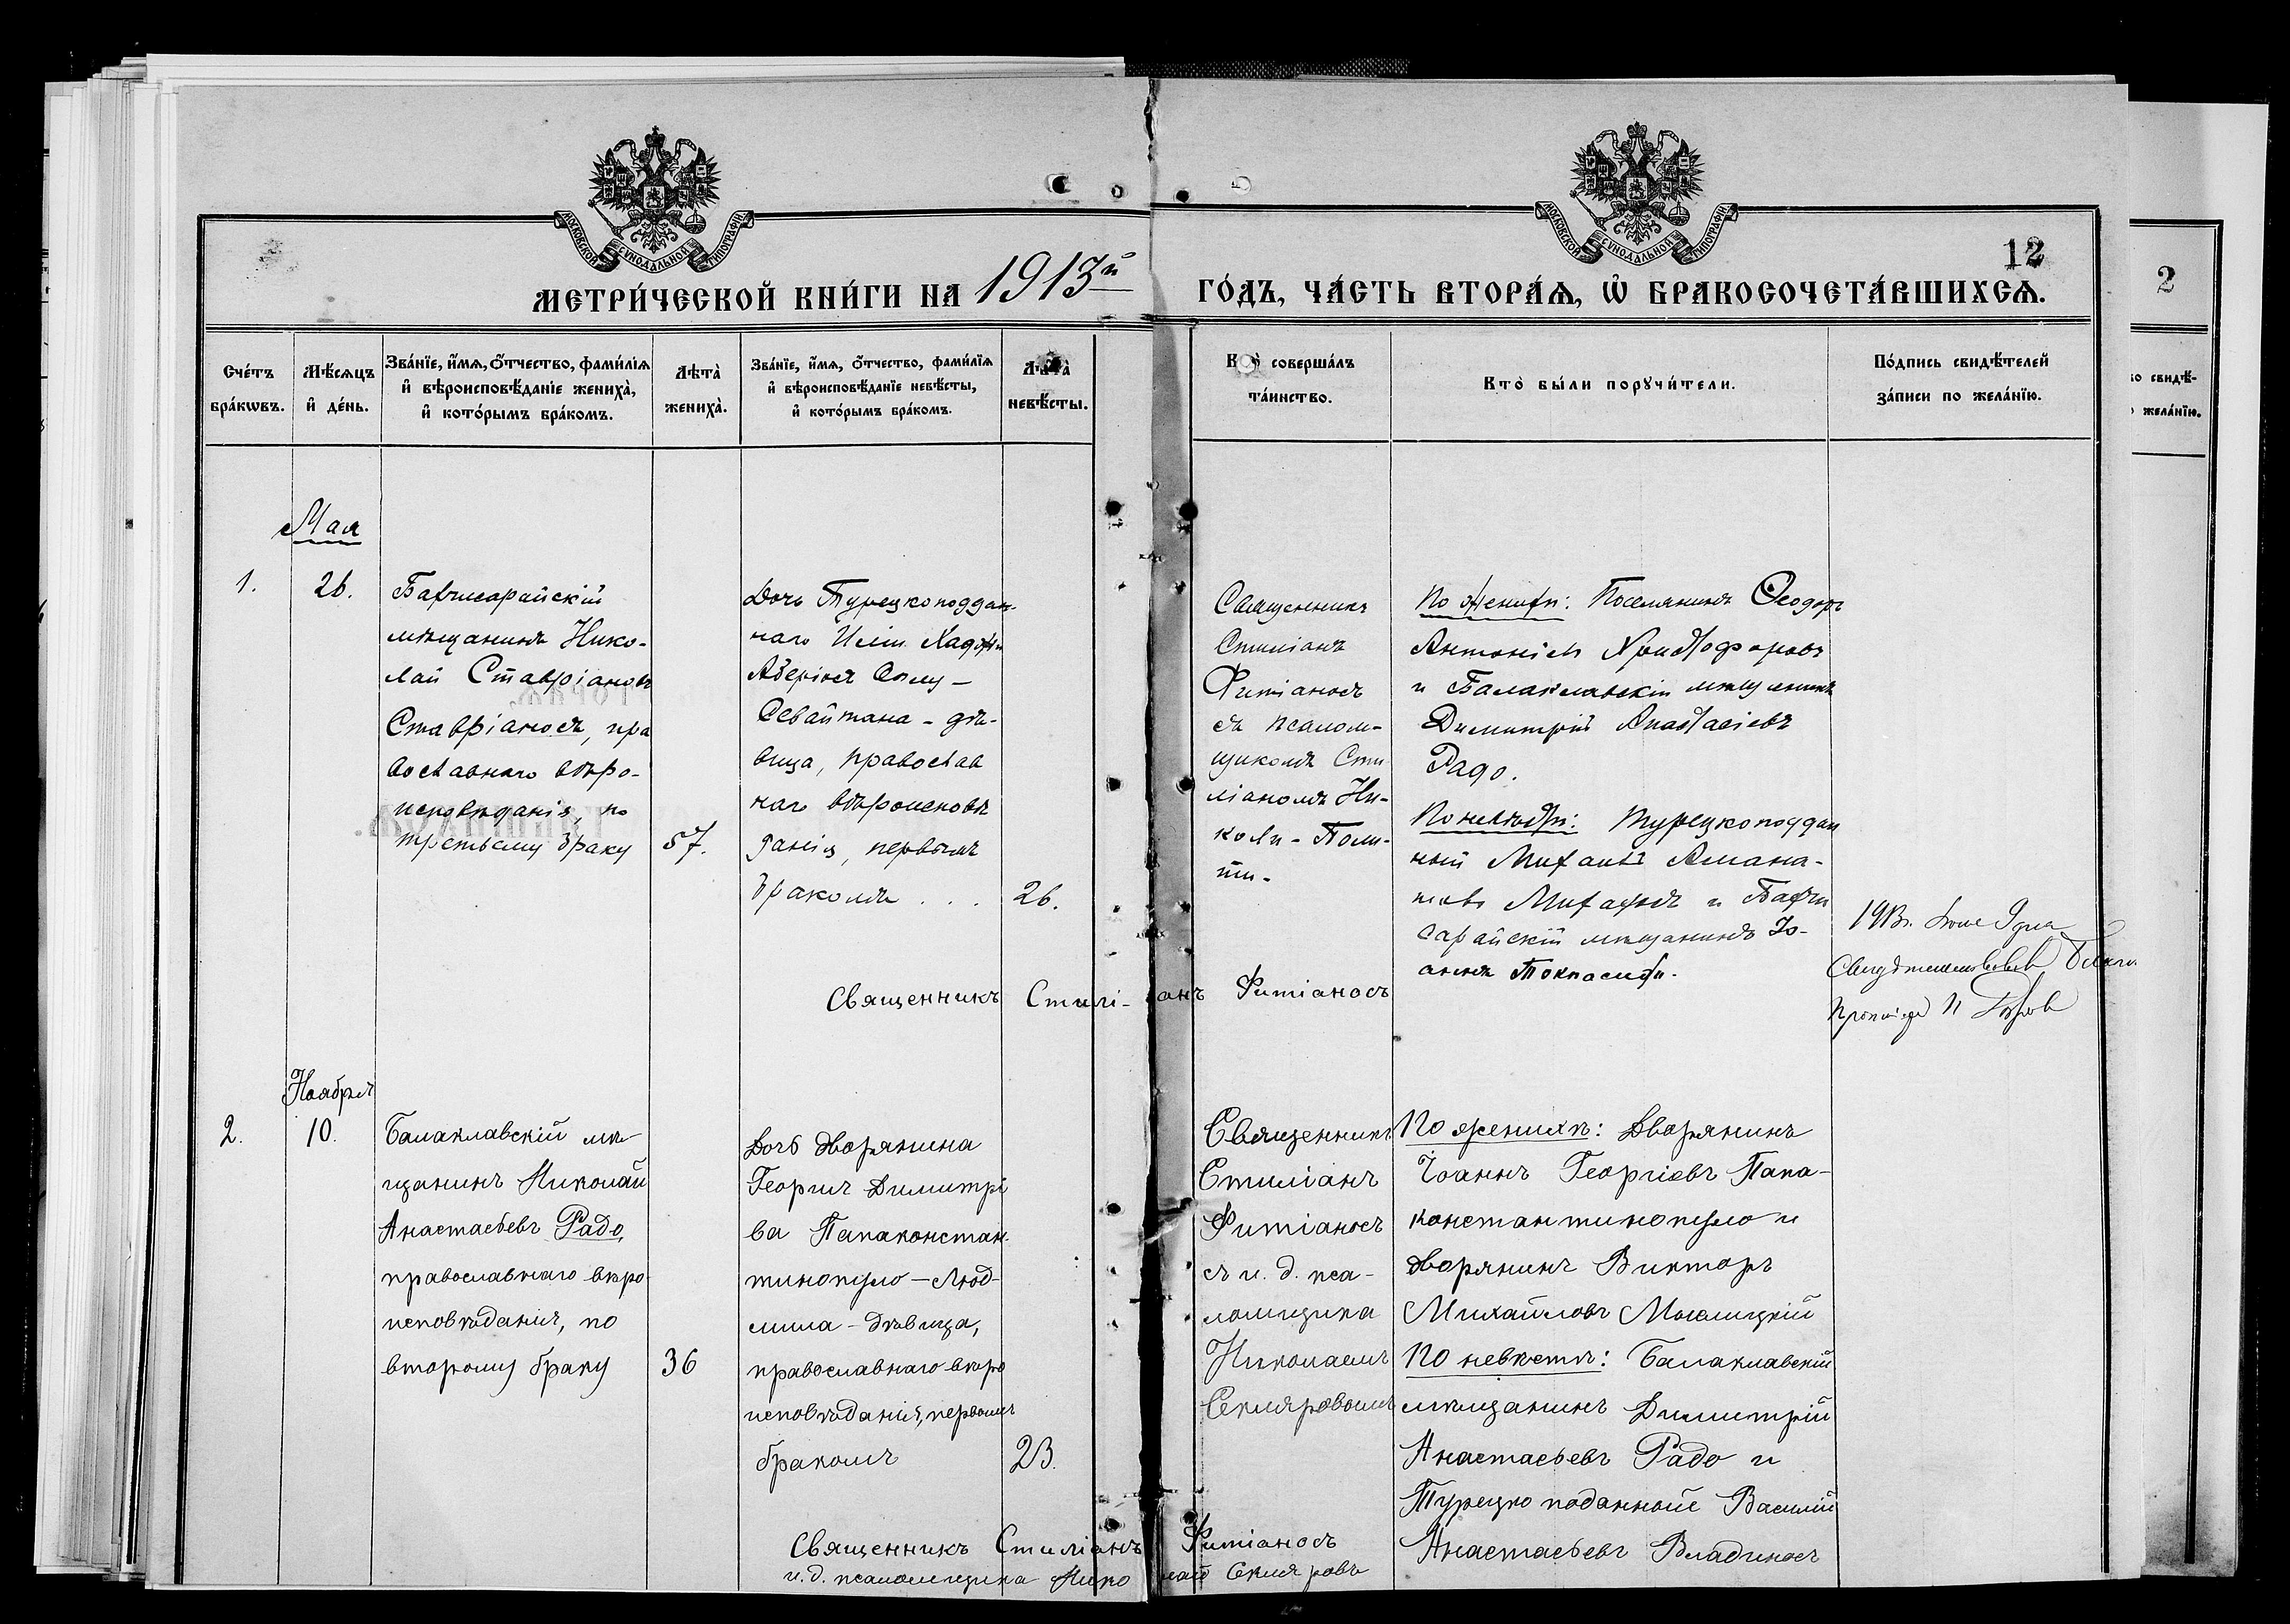 МОСКОВСКОЙ СУНОДАЛЬНОЙ ТИПОГРАФІИ
МОСКОВСКОЙ СУНОДАЛЬНОЙ ТИПОГРАФІИ
12
2
МЕТРИ́ЧЕСКОЙ КНИ́ГИ НА 1913й ГО́ДЪ, ЧА́СТЬ ВТОРА́Я, Ѡ БРАКОСОЧЕТА́ВШИХСЯ.
Сче́тъ
бра́кωвъ.
Мѣ́сяцъ
и҆ де́нь.
Зва́нїе, и҆́мя, ѻ҆́тчество, фами́лїя
и҆ вѣроисповѣ́данїе жениха̀,
и҆ кото́рымъ бра́комъ.
Лѣта̀
жениха̀.
Зва́нїе, и҆́мя, ѻ҆́тчество, фами́лїя
и҆ вѣроисповѣ́данїе невѣ́сты,
и҆ кото́рымъ бра́комъ.
Лѣта̀
невѣ́сты.
Кто̀ соверша́лъ
та́инство.
Кто̀ бы́ли порꙋчи́тели.
По́дпись свидѣ́телей
за́писи по жела́нїю.
о свидѣ́-
жела́нїю.
Мая
1.
26.
Бахчисарайскій
мѣщанинъ Нико-
лай Ставріановъ
Ставріаносъ, пра
вославнаго вѣро-
исповѣданія, по
третьему браку
57.
Дочь Турецкоподдан-
наго Хаджи
дѣ-
вица, православ
наго вѣроисповѣ
данія, первымъ
бракомъ . . .
26.
Священникъ
Стиліанъ
Фитіаносъ
съ псалом-
щикомъ Сти
ліаномъ Ни-
коли-Поли-
ти.
По женихѣ: Поселянинъ Ѳеодоръ
Антоніевъ Христофоровъ
и Балаклавскій мѣщанинъ
Димитрій Анастасіевъ
Радо.
По невѣстѣ: Турецкоподдан
ный Михаилъ
и Бахчи
сарайскій мѣщанинъ Іо-
аннъ
Священникъ Стиліанъ Фитіаносъ
Ноября
2.
10.
Балаклавскій мѣ
щанинъ Николай
Анастасьевъ Радо,
православнаго вѣро
исповѣданія, по
второму браку
36
Дочь дворянина
Георгія Димитрі
ва Папаконстан-
тинопуло – Люд-
мила – дѣвица,
православнаго вѣро
исповѣданія, первымъ
бракомъ
23.
Священникъ
Стиліанъ
Фитіаносъ
съ и. д. пса-
ломщика
Николаемъ
Скляровымъ
По женихѣ: Дворянинъ
Іоаннъ Георгіевъ Папа-
константинопуло и
дворянинъ Викторъ
Михайловъ
По невѣстѣ: Балаклавскій
мѣщанинъ Димитрій
Анастасьевъ Радо и
Турецко поданной Василій
Анастасьевъ Владиносъ
Священникъ Стиліанъ Фитіаносъ
и. д. псаломщика Николай Скляровъ